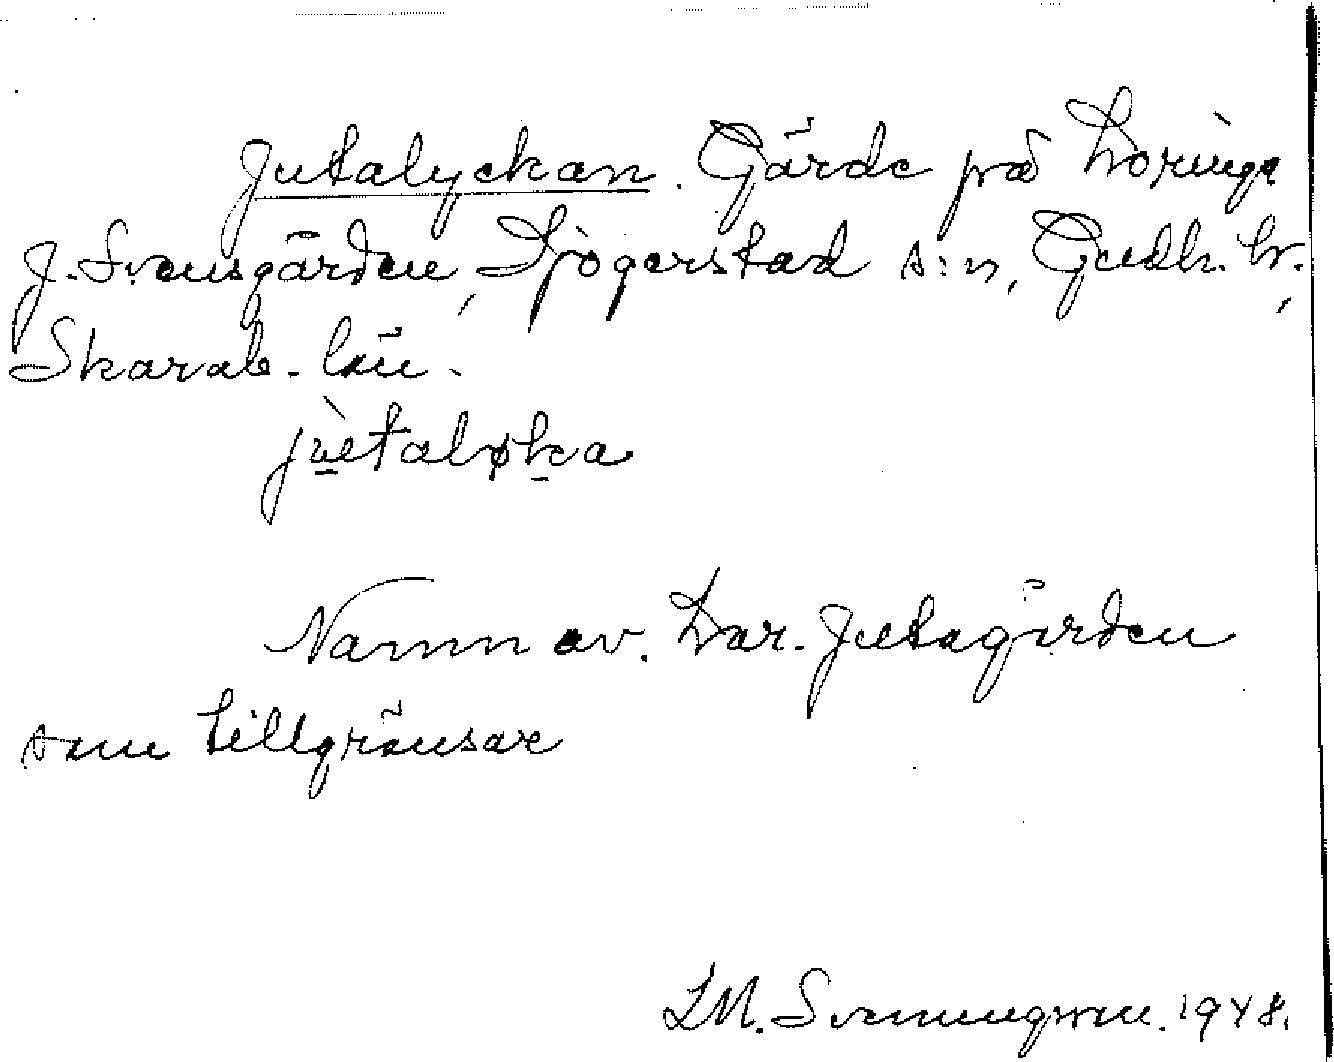 Jutalyckan. Gärde på Loringa
J. Svensgården, Sjogerstad s:n, Gudh. hr.,
Skarab. län.
jùtaløka
Namn av. Lar. Jutagården
som tillgränsar
LM. Svenungsson. 1948.